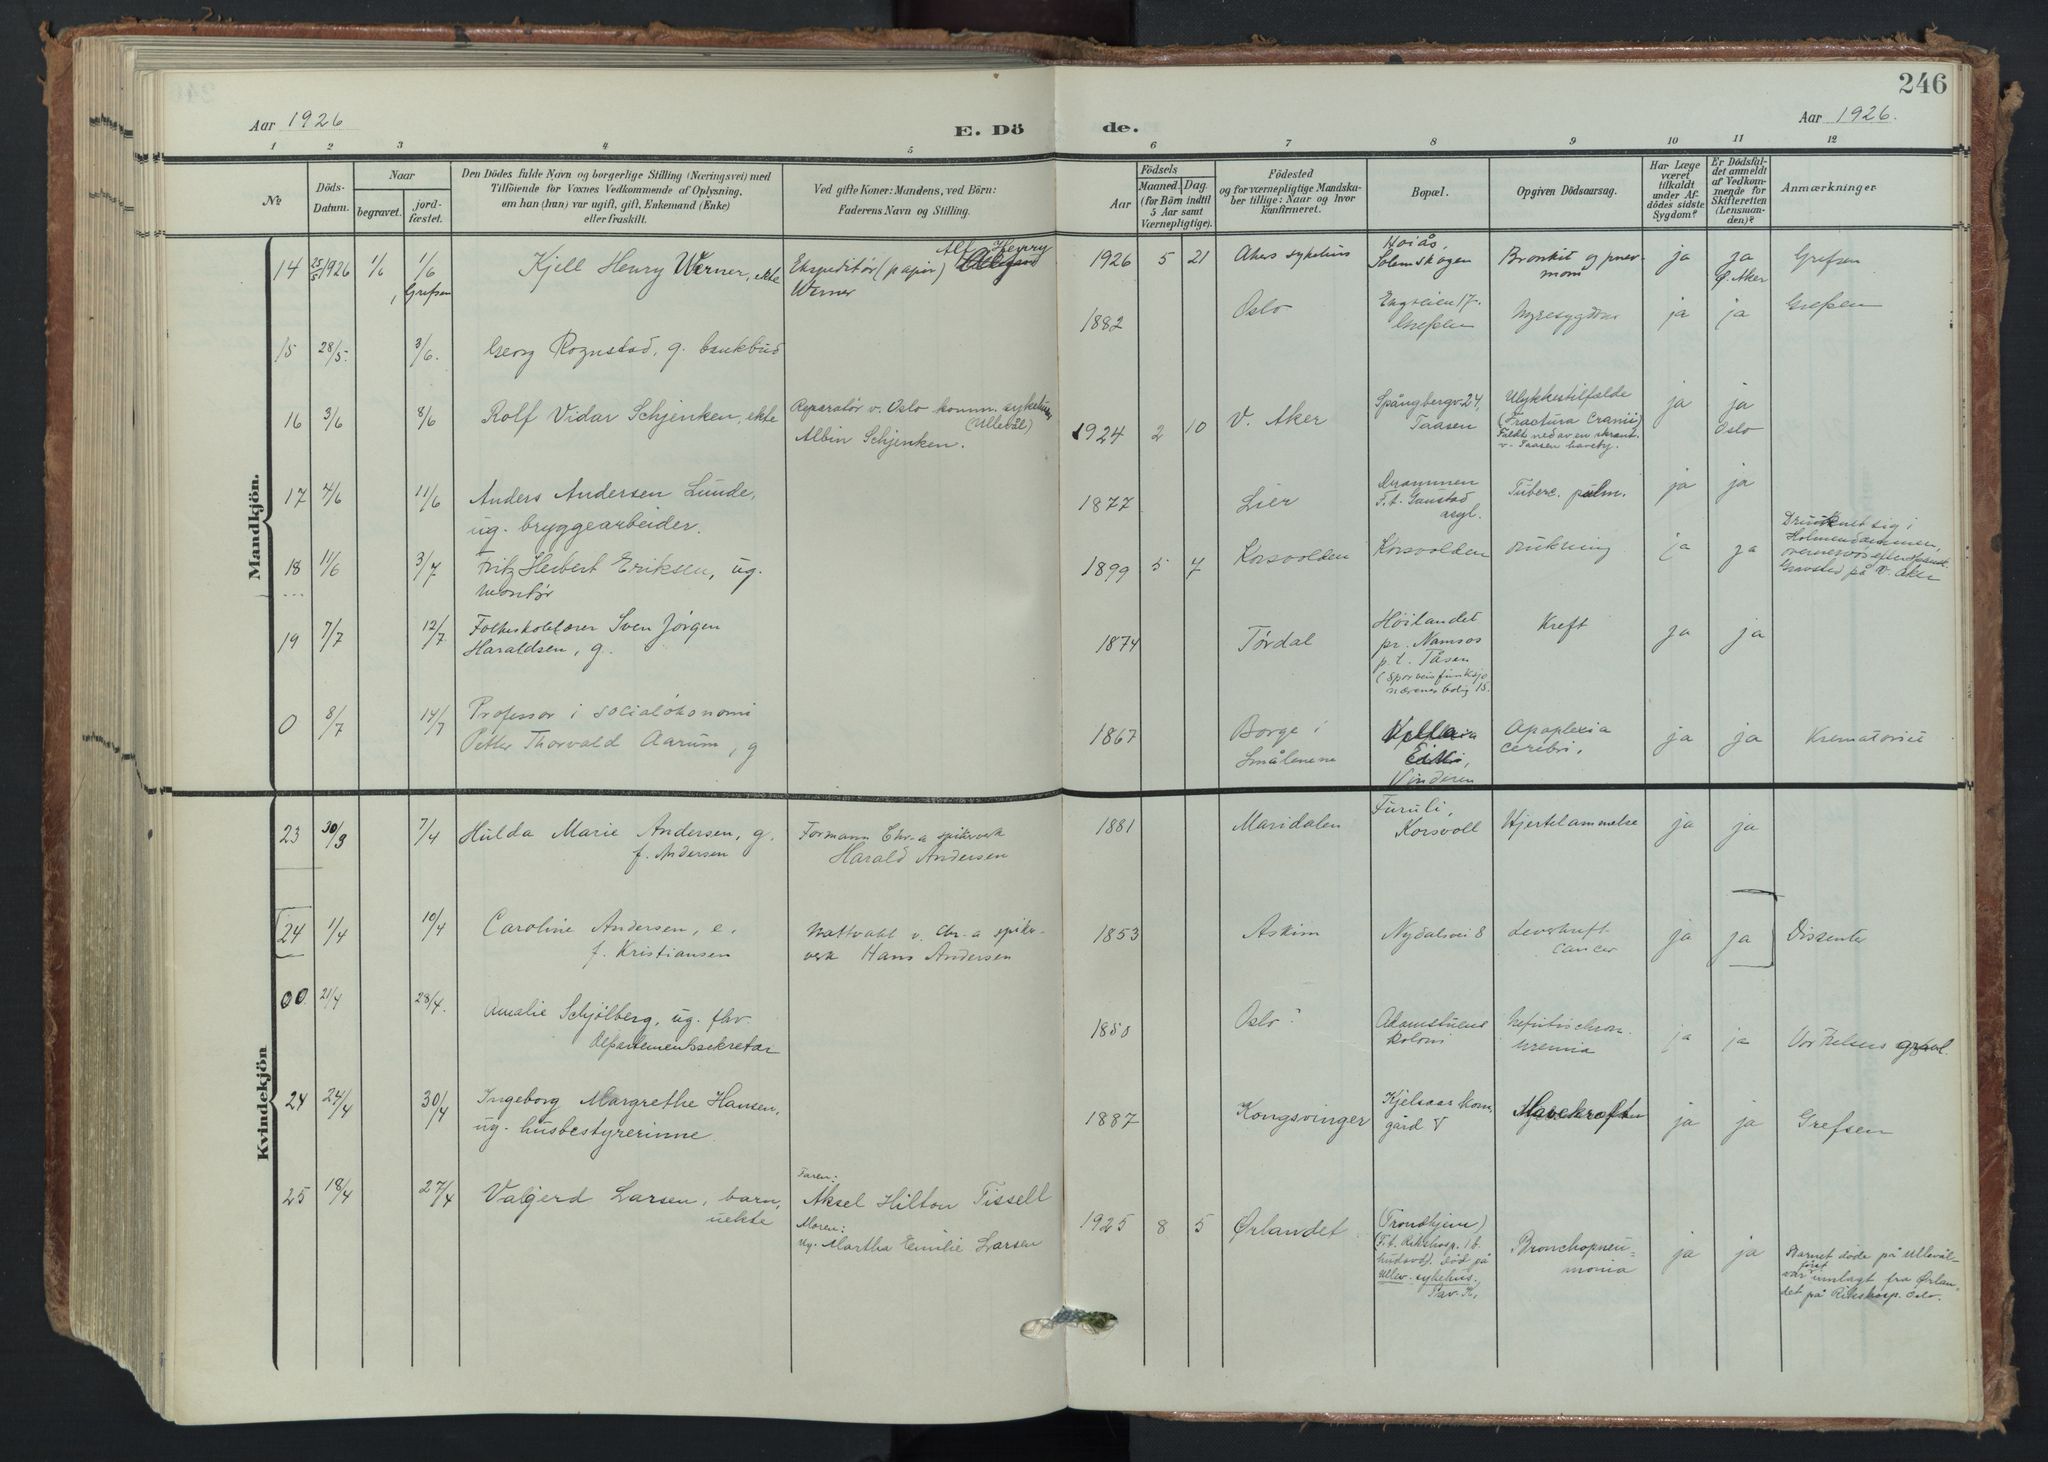 246
Aar 1926
E. Dö
de.
Aar 1926.
1 2 3 4 5 6 7 8 9 10 11 12
No
Döds-
Datum.
Naar
begravet.
jord-
fæstet.
Den Dödes fulde Navn og borgerlige Stilling (Næringsvei) med
Tilföiende for Voxnes Vedkommende af Oplysning,
om han (hun) var ugift, gift, Enkemand (Enke)
eller fraskilt.
Ved gifte Koner: Mandens, ved Börn:
Faderens Navn og Stilling.
Födsels
Aar
Maaned.
Dag.
(for Börn indtil
5 Aar samt
Værnepligtige).
Födested
og for værnepligtige Mandska-
ber tillige: Naar og hvor
konfirmeret.
Bopæl.
Opgiven Dödsaarsag.
Har Læge
været
tilkaldt
under Af-
dödes sidste
Sygdom?
Er Dödsfal-
det anmeldt
af Vedkom-
mende for
Skifteretten
(Lensman-
den)?
Anmærkninger.
Mandkjön.
14 25/5 1926 1/6 1/6 Kjell Henry Werner, ekte Ekspeditør (papir) Alf Henry 1926 5 21 Akers sykehus Solemskogen Bronkit og pnev- ja ja Grefsen
Grefsen Werner moni Ø. Aker
15 28/5. 3/6. Georg Rognstad, g. bankbud 1882 Oslo Engveien 17. Nyresygdom ja ja Grefsen
Grefsen
16 3/6 8/6 Rolf Vidar Schjenken, ekte Reparatør v. Oslo komm. sykehus 1924 2 10 V. Aker Spångbergv. 24, Ulykkestilfælde ja ja
(Ullevål) Taasen (Fractura Cranii) Oslo
Albin Schjenken. Faldt ned av en skrent
v. Taasen haveby.
17 4/6 11/6 Anders Andersen Lunde, 1877 Lier Drammen Tuberc. pulm. ja ja
ug. bryggearbeider. F.t. Gaustad
asyl.
18 11/6 3/7 Fritz Herbert Eriksen, ug. 1899 5 7 Korsvolden Korsvolden drukning ja ja Druknet sig i
montør Holmendammen,
Gravsted på V. Aker
19 7/7 12/7 Folkeskolelærer Sven Jørgen 1874 Tørdal Høilandet Kreft ja ja
Haraldsen, g. pr. Namsos
p.t. Tåsen
(Sporveisfunksjo
nærenes bolig 15.
0 8/7 14/7 Professor i socialøkonomi 1867 Borge i Apoplexia ja ja Krematoriet
Petter Thorvald Aarum, g Smålenene cerebri,
Vinderen
Kvindekjön
23 30/3 7/4 Hulda Marie Andersen, g. Formann Chr-a spikerverk 1881 Maridalen Furuli, Hjertelammelse ja ja
f. Andersen Harald Andersen Korsvoll
24 1/4 10/4 Caroline Andersen, e. Nattvakt v. Chr-a spiker- 1853 Askim Nydalsvei 8 Leverkreft ja ja Dissenter
f. Kristiansen verk Hans Andersen cancer
00 21/4 28/4. Amalie Schjølberg, ug. fhv. 1850 Oslo? Adamstuens Nefritis chron. ja ja Vor Frelsers gravl.
departementssekretær koloni uremia
24 24/4 30/4 Ingeborg Margrethe Hansen, 1887 Kongsvinger Kjelsaas kom. Mavekræften ja ja Grefsen
ug. husbestyrerinne. gård V
25 18/4 27/4 Valgerd Larsen, barn, Faren: 1925 8 5 Ørlandet (Trondhjem) Bronchopneu- ja ja Barnet døde på Ullevål
uekte Aksel Hilton Tissell (F.t. Rikshosp. monia var først innlagt fra Ørlan-
Moren: hudavd). død på det på Rikshosp. Oslo.
ug. Martha Emilie Larsen Ullev. sykehus.
Pav. K.